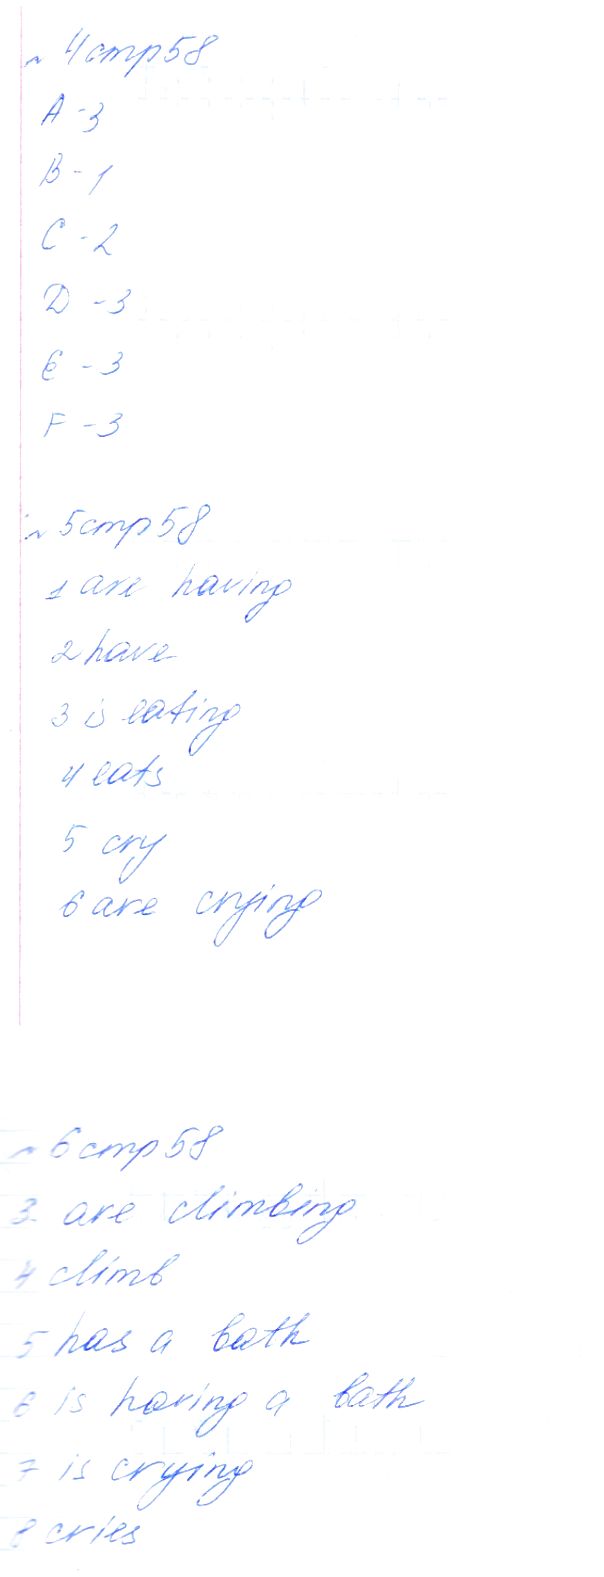 ~ 4 стр 58
A - 3
B - 1
C - 2
D - 3
E - 3
F - 3
~ 5 стр 58
1 are having
2 have
3 is eating
4 eats
5 cry
6 are crying
~ 6 стр 58
3 are climbing
4 climb
5 has a bath
6 is having a bath
7 is crying
8 cries